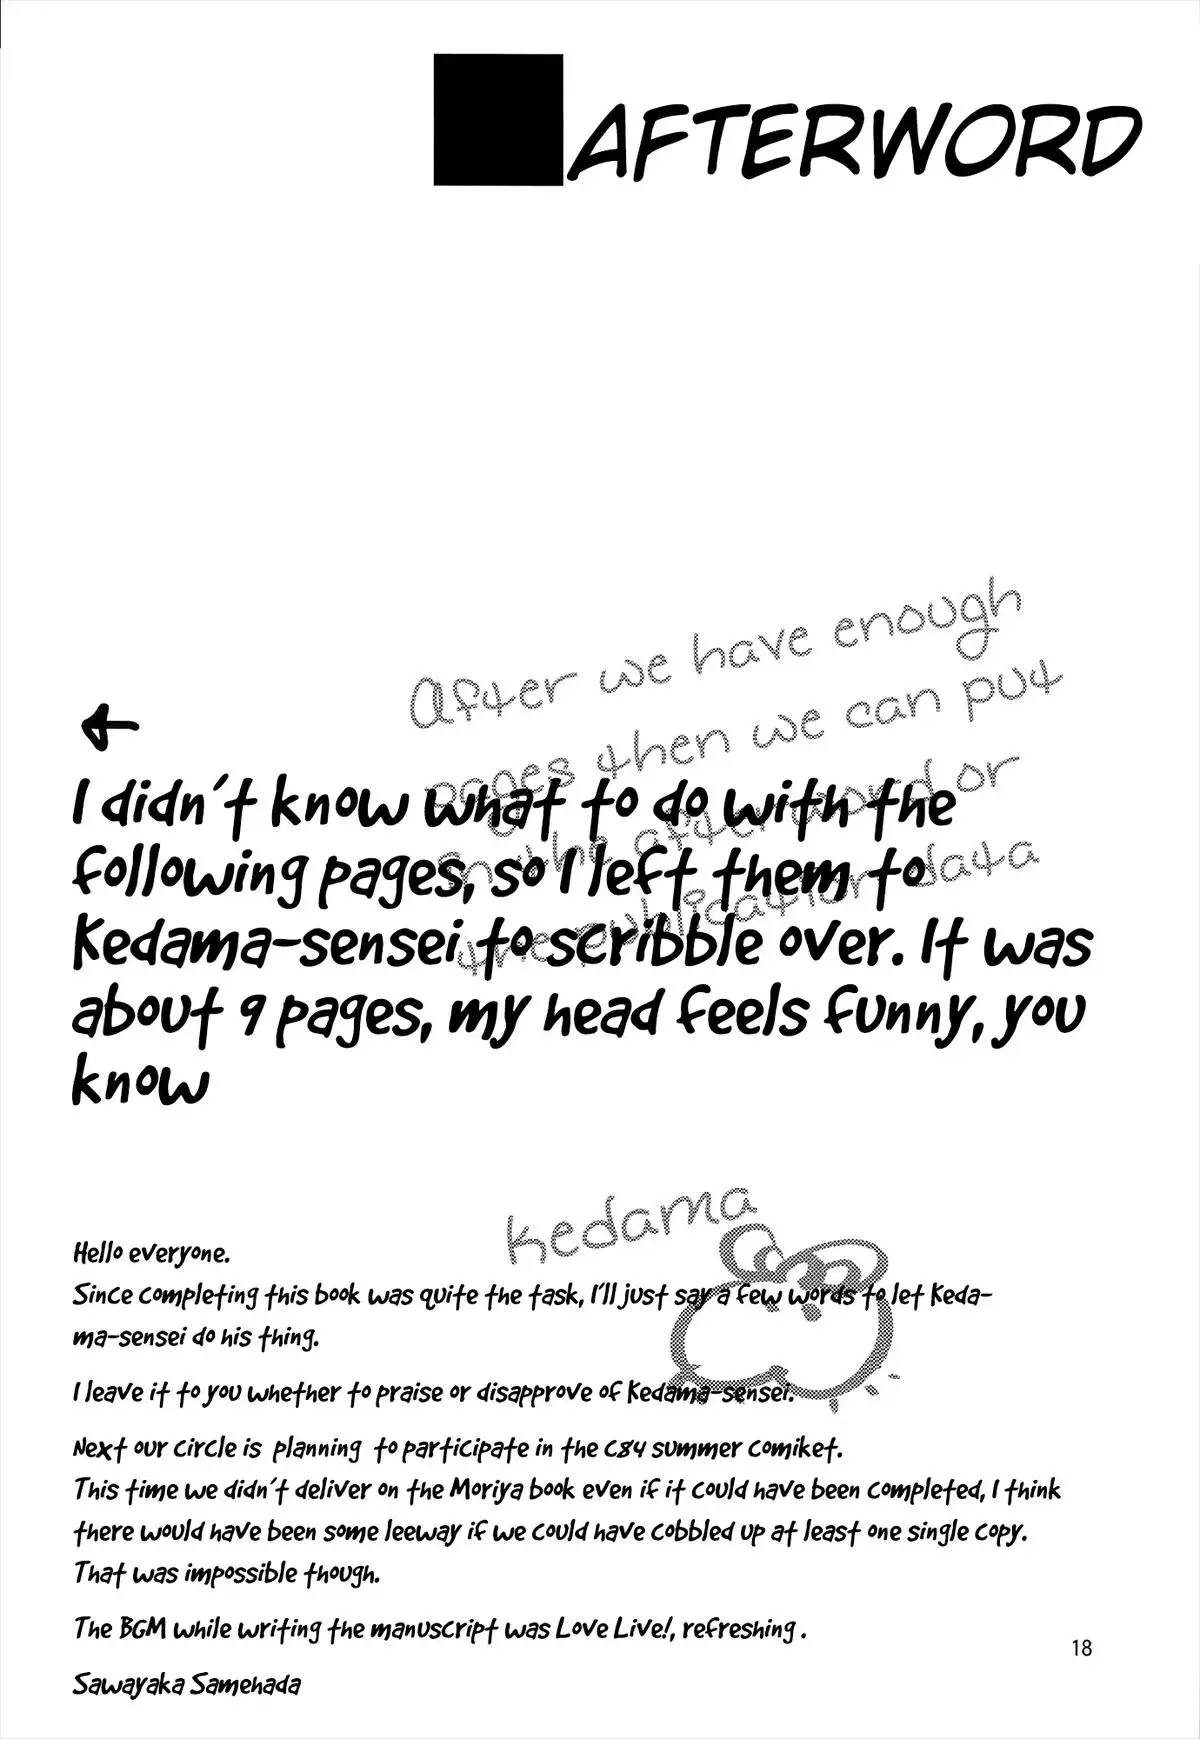 AFTERWORD
After we have enough
pages then we can put
in the after word or
the publication data
←
I didn't know what to do with the
following pages, so I left them to
Kedama-sensei to scribble over. It was
about 9 pages, my head feels funny, you
know
kedama
Hello everyone.
Since completing this book was quite the task, I'll just say a few words to let Keda-
ma-sensei do his thing.
I leave it to you whether to praise or disapprove of Kedama-sensei.
Next our circle is planning to participate in the C84 summer comiket.
This time we didn't deliver on the Moriya book even if it could have been completed, I think
there would have been some leeway if we could have cobbled up at least one single copy.
That was impossible though.
The BGM while writing the manuscript was Love Live!, refreshing .
Sawayaka Samehada
18